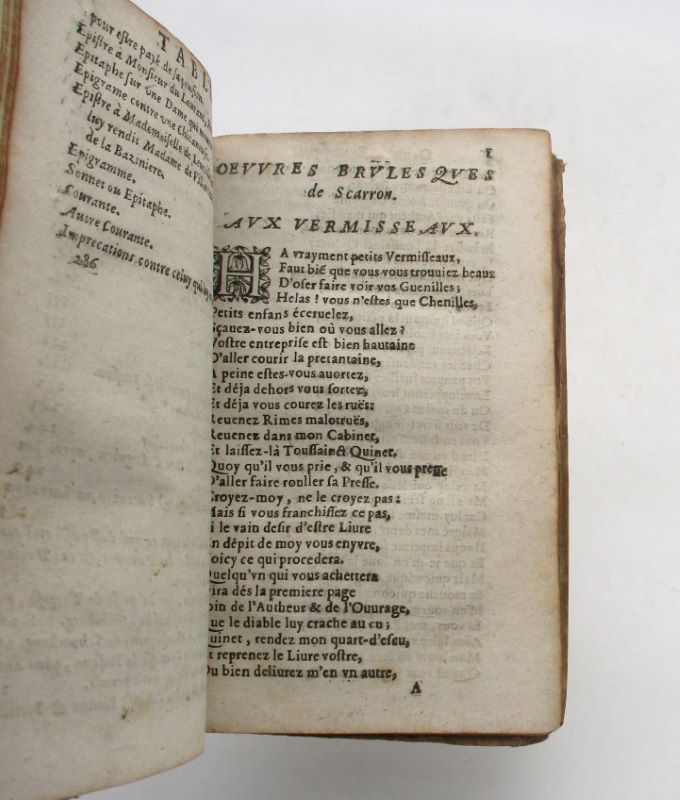 TABL
pour estre payé de sa pension.
Epistre à Monsieur du Laurent,
Epitaphe sur vne Dame qui
Epigrame contre vne Chicaneuse.
Epistre à Mademoiselle de
luy rendit Madame de
de la Baziniere.
Epigramme.
Sonnet ou Epitaphe.
Courante.
Autre Courante.
Imprecations contre celuy qui
286
1
OEVVRES BRVLESQVES
de Scarron.
AVX VERMISSEAVX.
HA vrayment petits Vermisseaux,
Faut bié que vous vous trouuiez beaux
D'oser faire voir vos Guenilles;
Helas! vous n'estes que Chenilles,
Petits enfans éceruelez,
Sçauez-vous bien où vous allez?
Vostre entreprise est bien hautaine
D'aller courir la pretantaine,
A peine estes-vous auortez,
Et déja dehors vous sortez,
Et déja vous courez les ruës:
Reuenez Rimes malotruës,
Reuenez dans mon Cabinet,
Et laissez-là Toussainct Quinet.
Quoy qu'il vous prie, & qu'il vous presse
D'aller faire rouller sa Presse.
Croyez-moy, ne le croyez pas:
Mais si vous franchissez ce pas,
Si le vain desir d'estre Liure
En dépit de moy vous enyvre,
Voicy ce qui procedera.
Quelqu'vn qui vous achettera
Dira dés la premiere page
Loin de l'Autheur & de l'Ouurage,
Que le diable luy crache au cu;
Quinet, rendez mon quart-d'escu,
Et reprenez le Liure vostre,
Ou bien deliurez m'en vn autre,
A